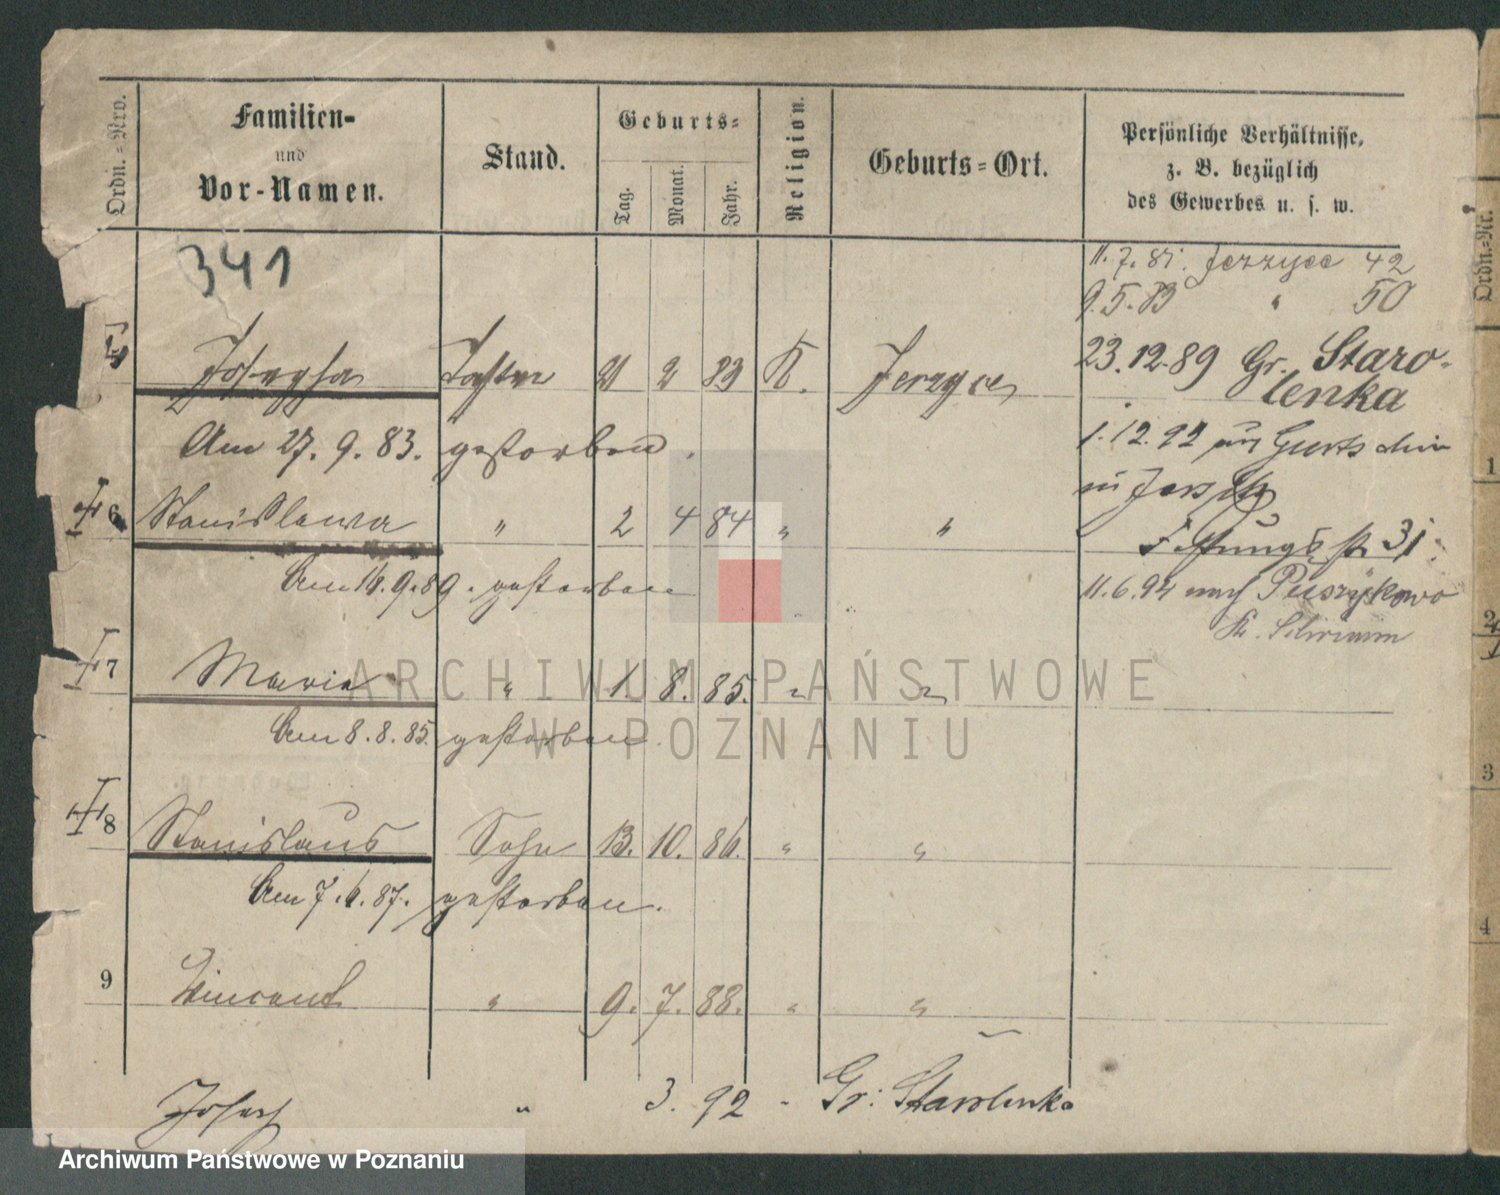 Ordn.=Nro.
Familien-
und
Vor-Namen.
Stand.
Geburts=
Tag.
Monat.
Jahr.
Religion.
Geburts=Ort.
Persönliche Verhältnisse,
z. B. bezüglich
des Gewerbes u. s. w.
341
11. 7. 81. Jerzyce 42
9. 5. 83 " 50
5 Josepha Tochter 21 2 83 K. Jerzyce
23.12.89 Gr. Staro-
lenka
Am 27. 9. 83. gestorben.
1. 12. 92 Gurtschin
in Jersitz
6 Stanislawa " 2 4 84 " "
31.
Am 16. 9. 89. gestorben
11. 6. 94 nach Puszykowo
Kr. Schrimm
7 Maria " 1. 8. 85. " "
Am 8. 8. 85. gestorben.
8 Stanislaus Sohn 13. 10. 86. " "
Am 7. 6. 87. gestorben.
9 Vincent " 9. 7. 88. " "
Josef " 3. 92 - Gr: Starolenka
Ordn.=Nr.
1
2
3
4
ARCHIWUM PAŃSTWOWE
W POZNANIU
Archiwum Państwowe w Poznaniu